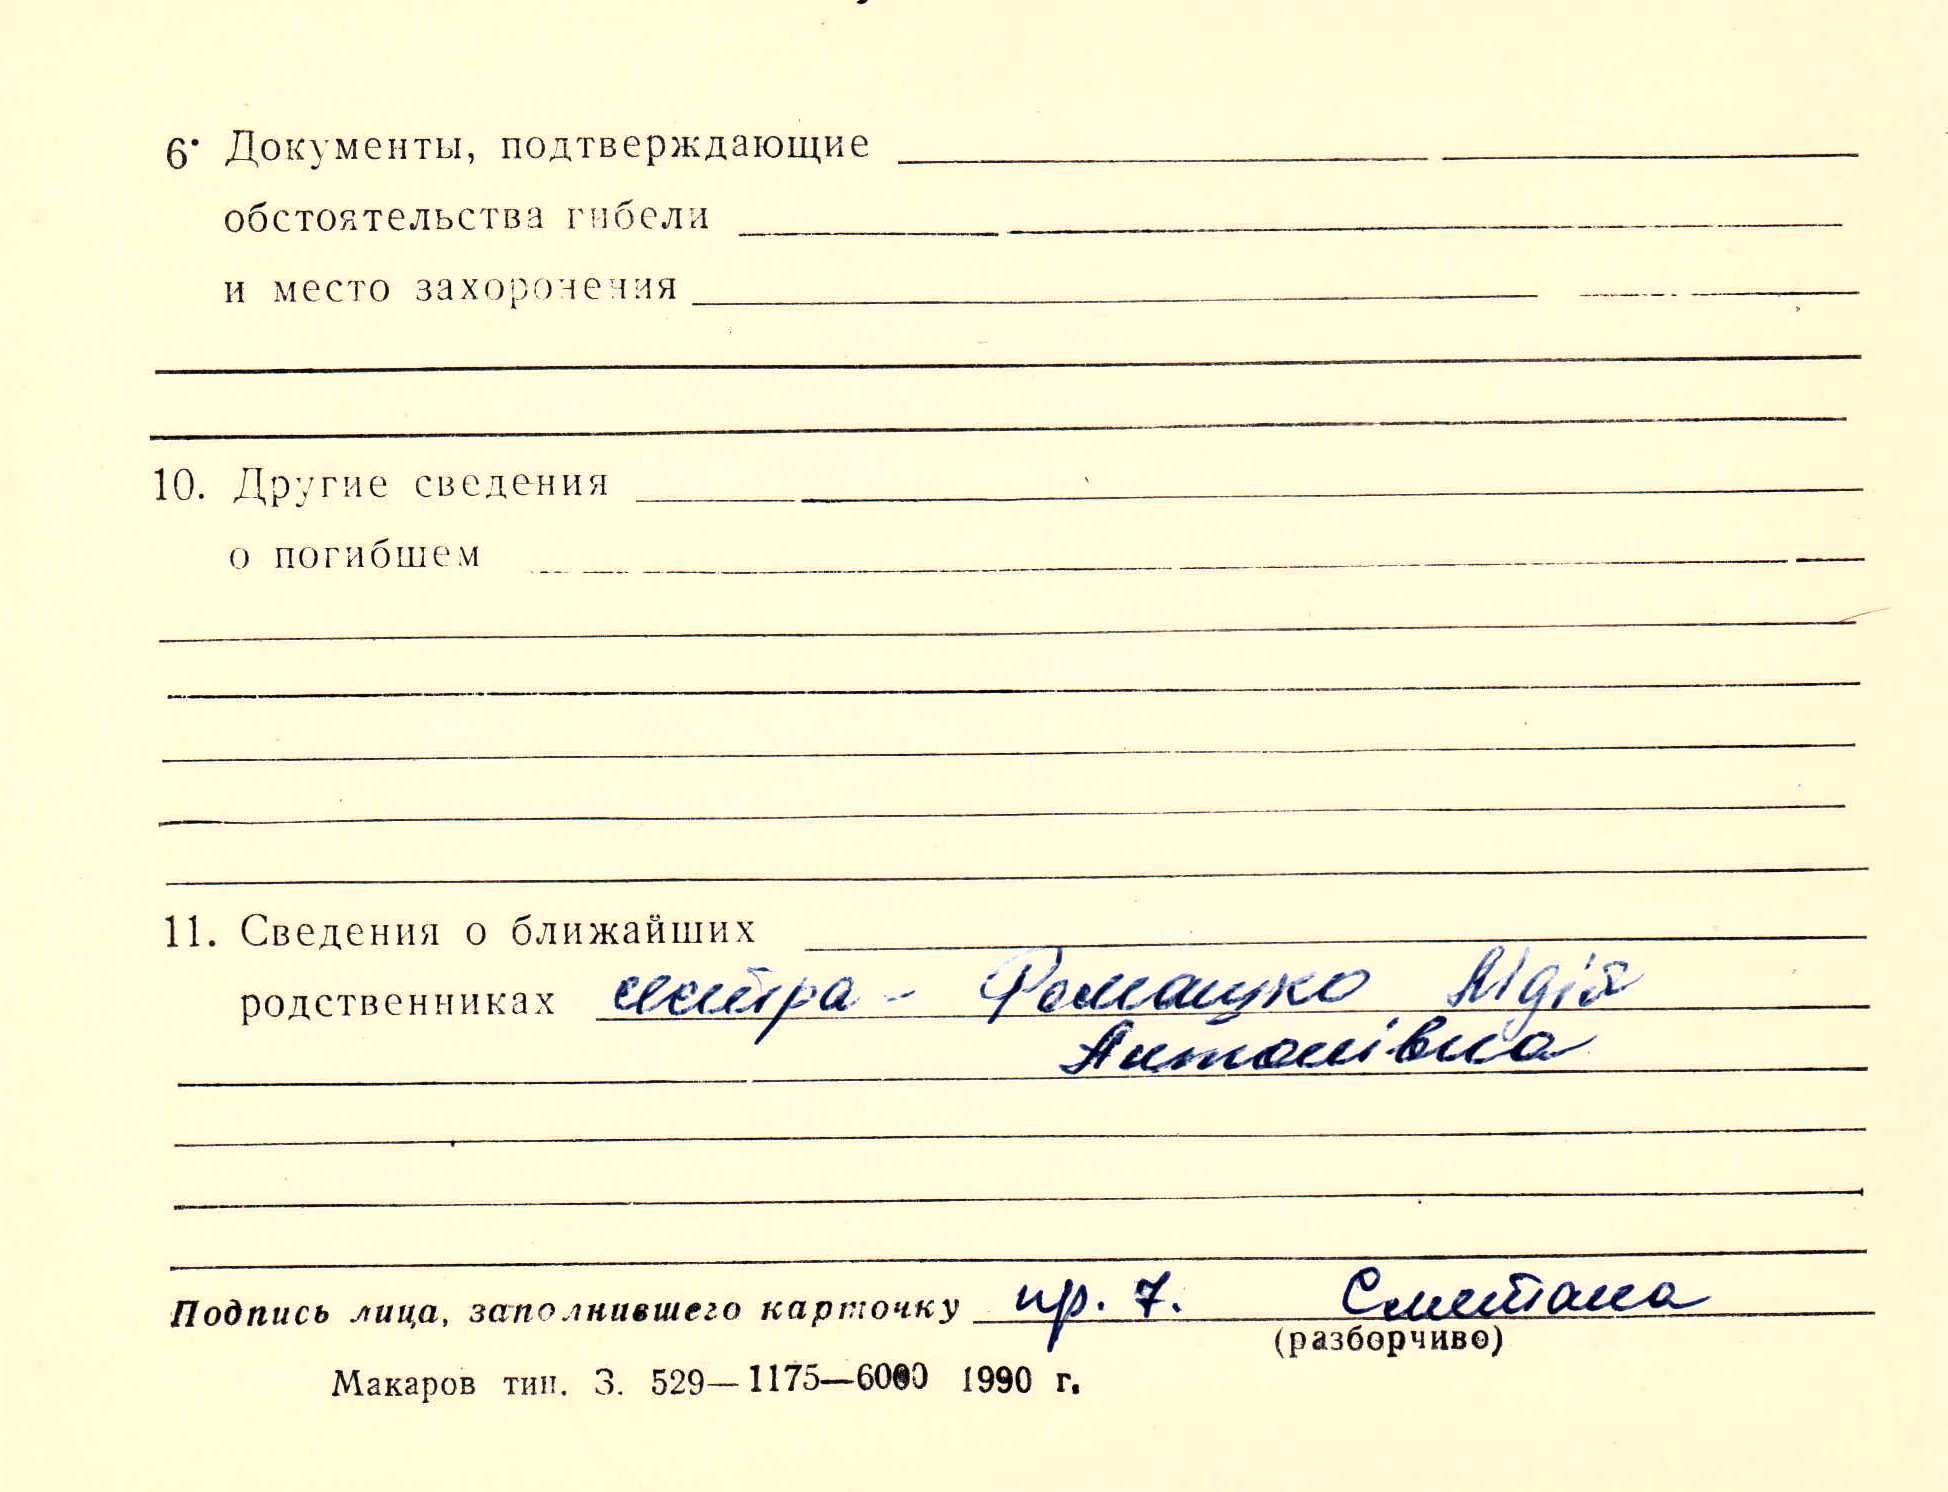 6. Документы, подтверждающие
обстоятельства гибели
и место захоронения
10. Другие сведения
о погибшем
11. Сведения о ближайших
родственниках сестра - Фомацко Лідія
Антонівна
Подпись лица, заполнившего карточку пр. 7. Сметана
(разборчиво)
Макаров тип. З. 529—1175—6000 1990 г.